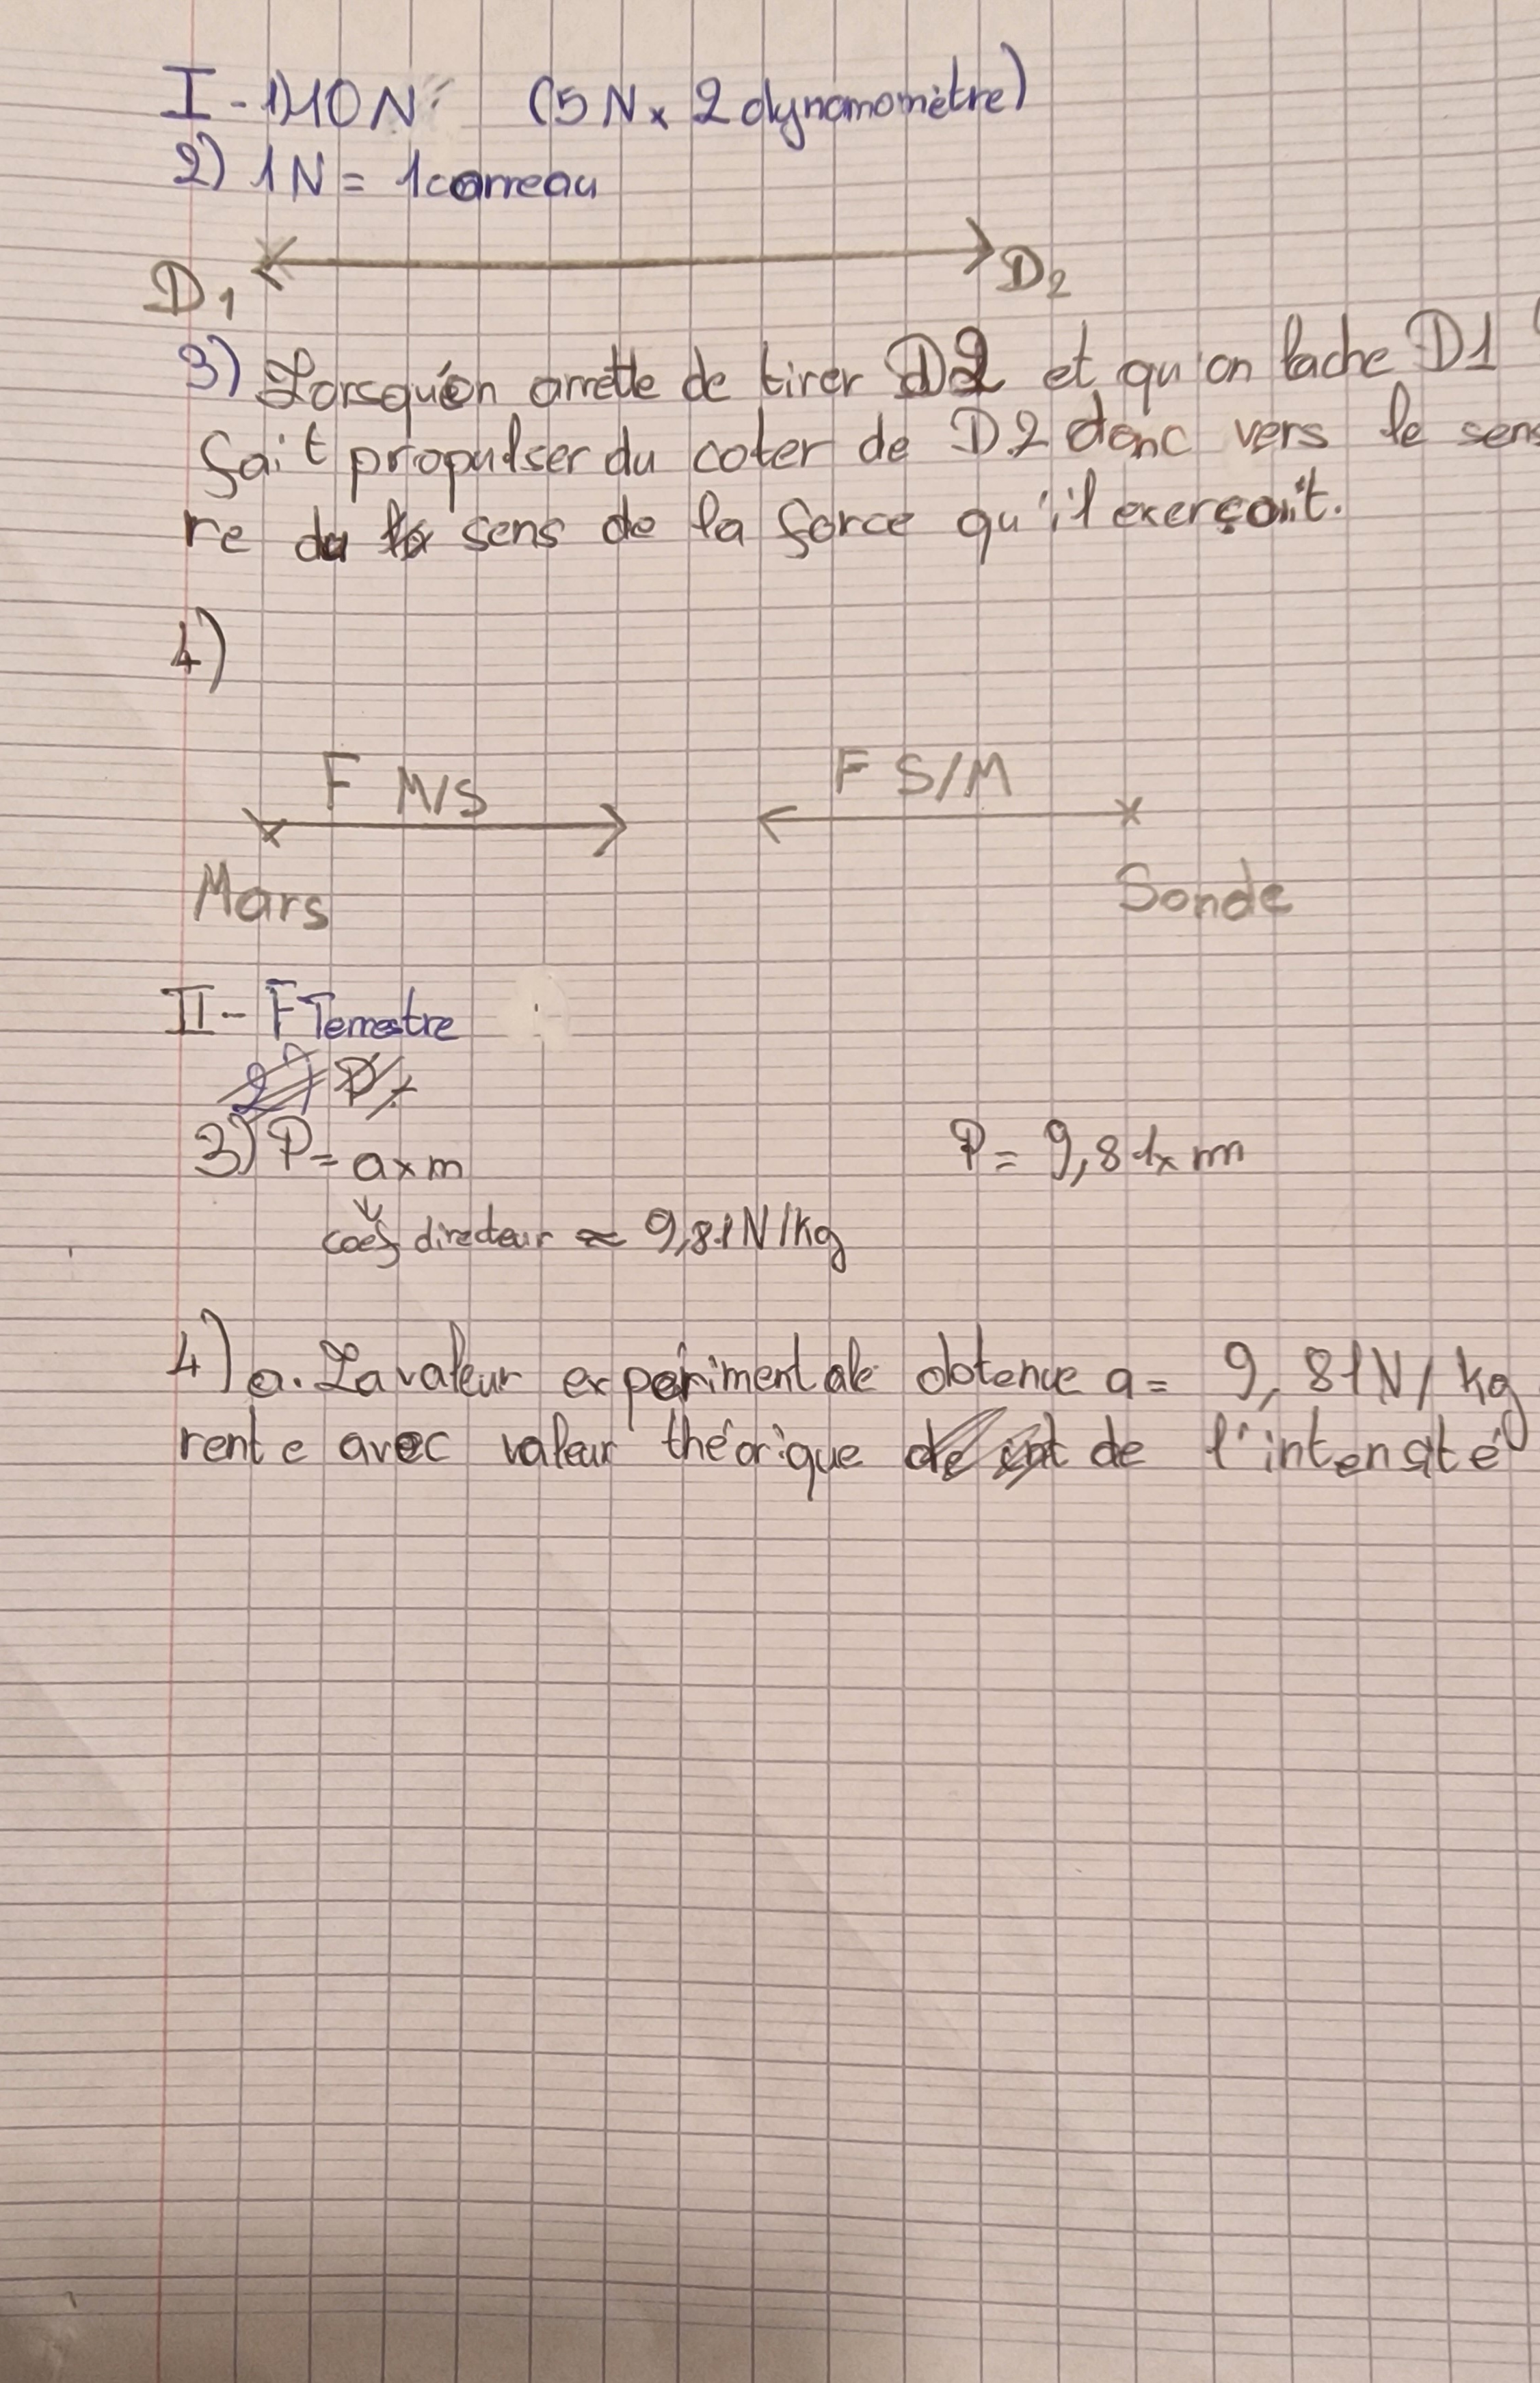 I - 1) 10 N (5 N x 2 dynamomètre)
2) 1 N = 1 carreau
D1 D2
3) Lorsqu'on arrette de tirer D2 et qu'on lache D1
fait propulser du coter de D2 donc vers le sens
re du sens de la force qu'il exerçait.
4)
F M/S F S/M
Mars Sonde
II - F Terrestre
2) P
3) P = a x m P = 9,81 x m
coef directeur ≈ 9,81 N/kg
4) a. La valeur experimentale obtenue a = 9,81 N/kg
rente avec valeur théorique de l'intensité